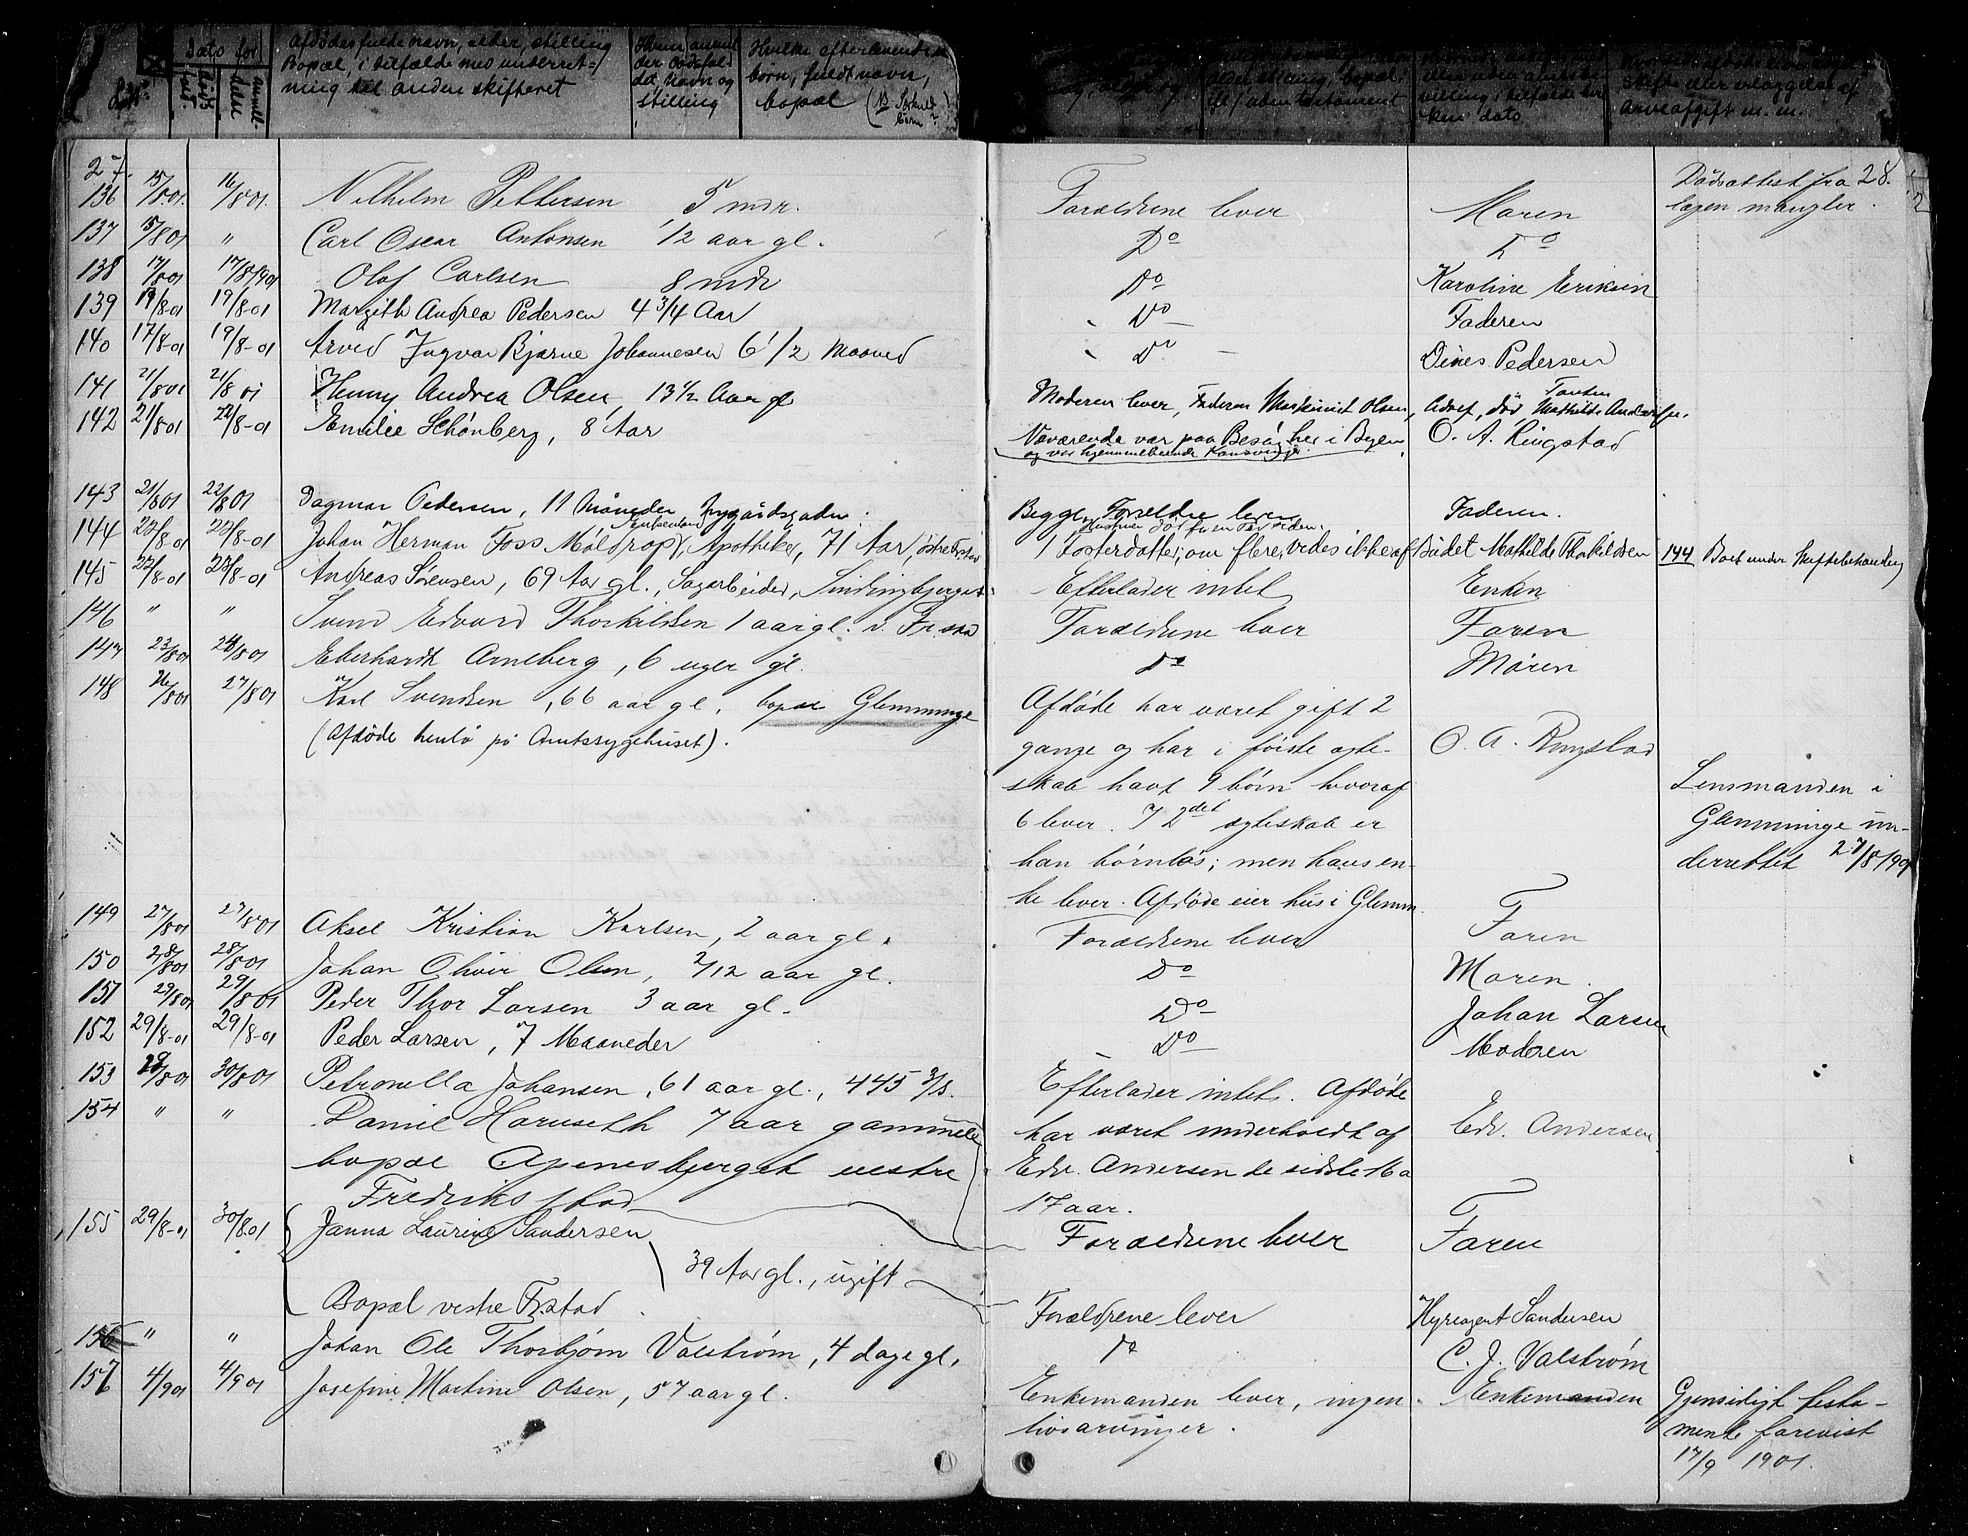 Dato for
Afdødes fulde navn, alder, stilling
Bopæl, i tilfælde med underret-
ning til anden skifteret
Hvem anmel-
der dødsfal-
det, navn og
stilling
Hvilke efterlevende
børn, fuldt navn,
bopæl (NB Særkuld-
børn?
27.
136 15/8 01. 16/8 01. Vilhelm Pettersen 5 mdr. Forældrene lever Moren Dødsattest fra 28.
lægen mangler.
137 15/8 01 " Carl Oscar Antonsen 1/2 aar gl. Do Do
138 17/8 01 17/8 1901 Olaf Carlsen 8 mdr Do Karoline Eriksen
139 19/8 01 19/8 01 Margith Andrea Pedersen 4 3/4 Aar Do Faderen
140 17/8-01 19/8-01 Arved Ingvar Bjarne Johannesen 6 1/2 Maaned Do Dines Pedersen
141 21/8 01 21/8 01 Henny Andrea Olsen 13 1/2 Aar gl Moderen lever, Faderen Maskinist Olsen, udvst, død Tanten Mathilde Andersen
142 21/8 01 22/8-01 Emilie Schönberg, 8 Aar Nærværende var paa Besøg her i Byen O. A. Ringstad
og var hjemmehørende
143 21/8 01 22/8 01 Dagmar Pedersen, 11 Måneder, Nygårdsgaden. Begge Forældre lever Faderen.
144 22/8-01 22/8-01 Johan Herman Foss Møldrop, Enkemand, Apotheker, 71 Aar, østre Fr.stad 1 Fosterdatter, om flere, vides ikke af Budet Mathilde Thorkildsen 144 Boet under Skiftebehandlg
145 22/8-01 23/8-01 Andreas Sørensen, 69 Aar gl., Sagarbeider, Lindingbjerget. Efterlader intet Enken
146 " " Svend Edvard Thorkildsen 1 aar gl. v. Fr.stad Forældrene lever Faren
147 23/8 01 24/8 01 Eberhardt Arneberg, 6 uger gl. Do Moren
148 26/8 01 27/8 01 Karl Svendsen, 66 aar gl, bopæl Glemminge Afdøde har været gift 2
(Afdøde henlå på Amtssygehuset). gange og har i første ægte- O. A. Ringstad
skab havt 9 børn hvoraf Lensmanden i
6 lever. I 2det ægteskab er Glemminge un-
han børnløs; men hans en- derrettet 27/8 1901
ke lever. Afdøde eier hus i Glemm.
149 27/8 01 27/8 01 Aksel Kristian Karlsen, 2 aar gl. Forældrene lever Faren
150 28/8 01 28/8 01 Johan Oliver Olsen, 2/12 aar gl. Do Moren.
151 29/8 01 29/8 01 Peder Thor Larsen 3 aar gl. Do Johan Larsen
152 29/8-01 29/8-01 Peder Larsen, 7 Maaneder Do Moderen
153 29/8 01 30/8 01 Petronella Johansen, 61 aar gl., 445 3/s. Efterlader intet. Afdøde
har været underholdt af Edv. Andersen
Edv. Andersen de sidste 16 a
17 aar.
154 " " Daniel Haruseth 7 aar gammel
bopæl Apenesbjerget vestre
Fredriksstad Forældrene lever Faren
155 29/8-01 30/8 01 Janna Laurine Sandersen
39 Aar gl., ugift
Bopæl vestre Fr.stad. Forældrene lever Hyreagent Sandersen
156 " " Johan Ole Thorbjørn Valstrøm, 4 dage gl. do C. J. Valstrøm
157 4/9 01 4/9 01 Josefine Martine Olsen, 57 aar gl. Enkemanden lever, ingen Enkemanden Gjensidigt testa-
livsarvinger. mente forevist
17/9 1901.